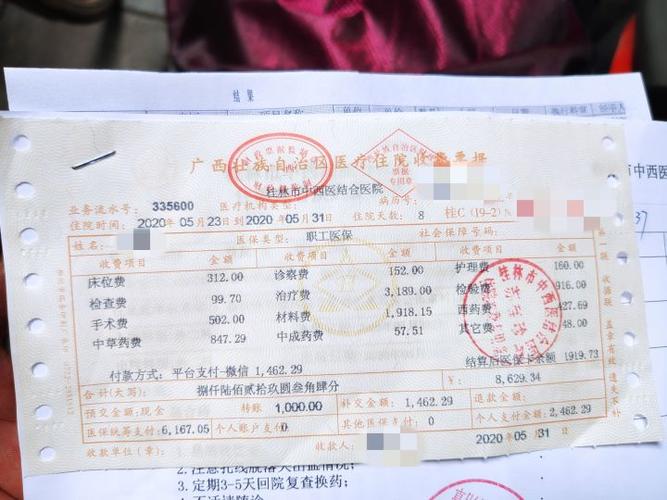 结 果
广西壮族自治区医疗住院收费票据
桂林市中西医结合医院
业务流水号: 335600 医疗机构类型: 病历号:
住院时间: 2020 年 05 月 23 日 到 2020 年 05 月 31 日 住院天数: 8 桂C (19-2) N
姓名: 医保类型: 职工医保 社会保障号码:
收费项目 金额 收费项目 金额 收费项目 金额
床位费 312.00 诊察费 152.00 护理费 160.00
检查费 99.70 治疗费 3,189.00 检验费 916.00
手术费 502.00 材料费 1,918.15 西药费 427.69
中草药费 847.29 中成药费 57.51 其它费 48.00
结算后医保卡余额 1919.73
付款方式: 平台支付-微信 1,462.29
合计(大写) 捌仟陆佰贰拾玖圆叁角肆分 ¥: 8,629.34
预交金额:现金 转账 1,000.00 补交金额: 1,462.29 退款金额:
医保统筹支付: 6,167.05 个人账户支付: 0 其他医保支付: 0 个人支付金额: 2,462.29
收款单位(章): 收款人: 2020 年 05 月 31 日
2.注意扎线脱落大出血情况;
3.定期3-5天回院复查换药;